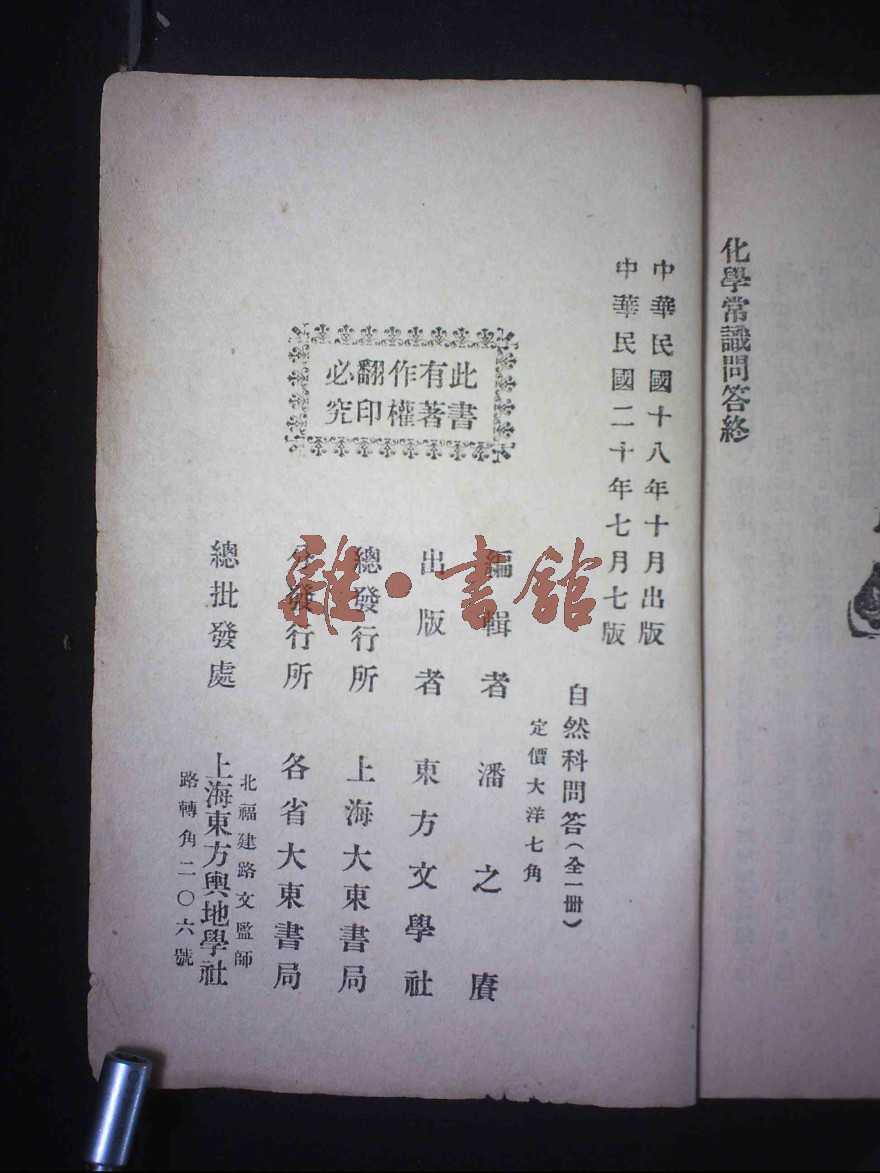 化學常識問答終
中華民國十八年十月出版
中華民國二十年七月七版
自然科問答(全一册)
定價大洋七角
此書
有著
作權
翻印
必究
編輯者 潘之賡
出版者 東方文學社
總發行所 上海大東書局
分發行所 各省大東書局
總批發處 上海東方輿地學社
北福建路文監師
路轉角二〇六號
雜·書館